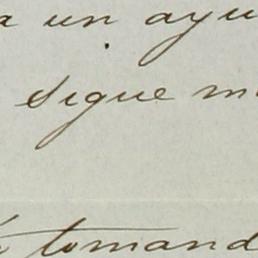 a un ayu
sigue m
tomand